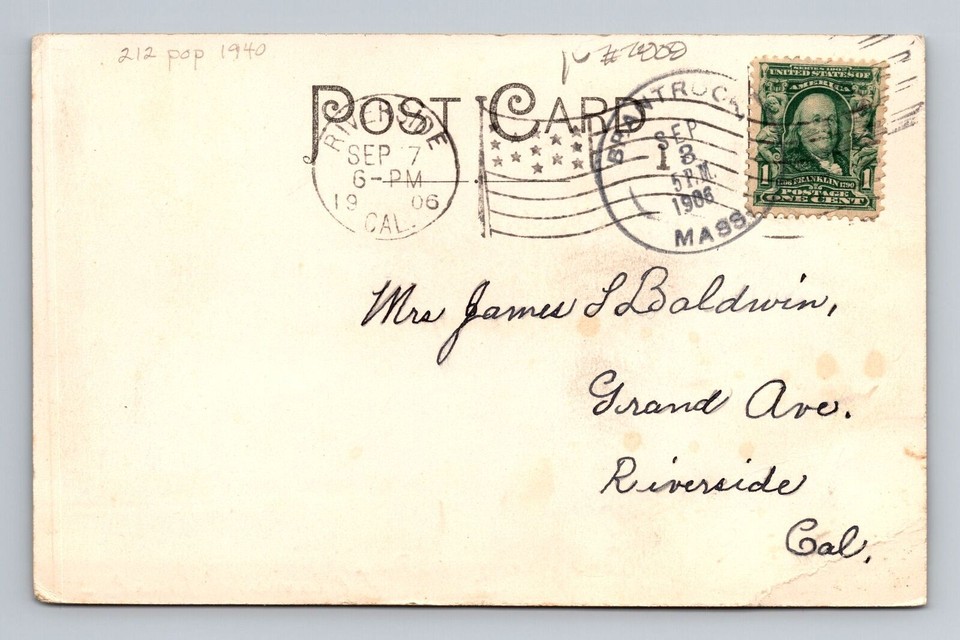 212 pop 1940
POST CARD
RIVERSIDE
SEP 7
6-PM
1906
CAL.
BRANTROCK,
SEP
3
5 P.M.
1906
MASS.
SERIES 1902
UNITED STATES OF
AMERICA
1 1
1706 FRANKLIN 1790
POSTAGE
ONE CENT
1
Mrs James S Baldwin,
Grand Ave.
Riverside
Cal,